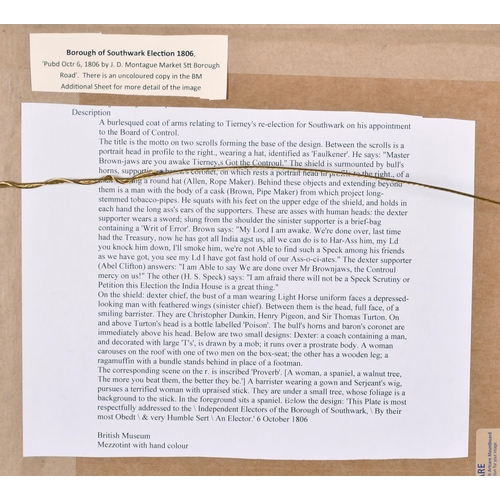 Borough of Southwark Election 1806,
'Pubd Octr 6, 1806 by J. D. Montague Market Stt Borough
Road'. There is an uncoloured copy in the BM
Additional Sheet for more detail of the image
Description
A burlesqued coat of arms relating to Tierney's re-election for Southwark on his appointment
to the Board of Control.
The title is the motto on two scrolls forming the base of the design. Between the scrolls is a
portrait head in profile to the right., wearing a hat, identified as 'Faulkener'. He says: "Master
Brown-jaws are you awake Tierney,s Got the Controul." The shield is surmounted by bull's
horns, supporting a baron's coronet, on which rests a portrait head in profile to the right., of a
a round hat (Allen, Rope Maker). Behind these objects and extending beyond
them is a man with the body of a cask (Brown, Pipe Maker) from which project long-
stemmed tobacco-pipes. He squats with his feet on the upper edge of the shield, and holds in
each hand the long ass's ears of the supporters. These are asses with human heads: the dexter
supporter wears a sword; slung from the shoulder the sinister supporter is a brief-bag
containing a 'Writ of Error'. Brown says: "My Lord I am awake. We're done over, last time
had the Treasury, now he has got all India agst us, all we can do is to Har-Ass him, my Ld
you knock him down, I'll smoke him, we're not Able to find such a Speck among his friends
as we have got, you see my Ld I have got fast hold of our Ass-o-ci-ates." The dexter supporter
(Abel Clifton) answers: "I am Able to say We are done over Mr Brownjaws, the Controul
mercy on us!" The other (H. S. Speck) says: "I am afraid there will not be a Speck Scrutiny or
Petition this Election the India House is a great thing."
On the shield: dexter chief, the bust of a man wearing Light Horse uniform faces a depressed-
looking man with feathered wings (sinister chief). Between them is the head, full face, of a
smiling barrister. They are Christopher Dunkin, Henry Pigeon, and Sir Thomas Turton. On
and above Turton's head is a bottle labelled 'Poison'. The bull's horns and baron's coronet are
immediately above his head. Below are two small designs: Dexter: a coach containing a man,
and decorated with large 'T's', is drawn by a mob; it runs over a prostrate body. A woman
carouses on the roof with one of two men on the box-seat; the other has a wooden leg; a
ragamuffin with a bundle stands behind in place of a footman.
The corresponding scene on the r. is inscribed 'Proverb'. [A woman, a spaniel, a walnut tree,
The more you beat them, the better they be.'] A barrister wearing a gown and Serjeant's wig,
pursues a terrified woman with upraised stick. They are under a small tree, whose foliage is a
background to the stick. In the foreground sits a spaniel. Below the design: 'This Plate is most
respectfully addressed to the \ Independent Electors of the Borough of Southwark, \ By their
most Obedt \ & very Humble Sert \ An Elector.' 6 October 1806
British Museum
Mezzotint with hand colour